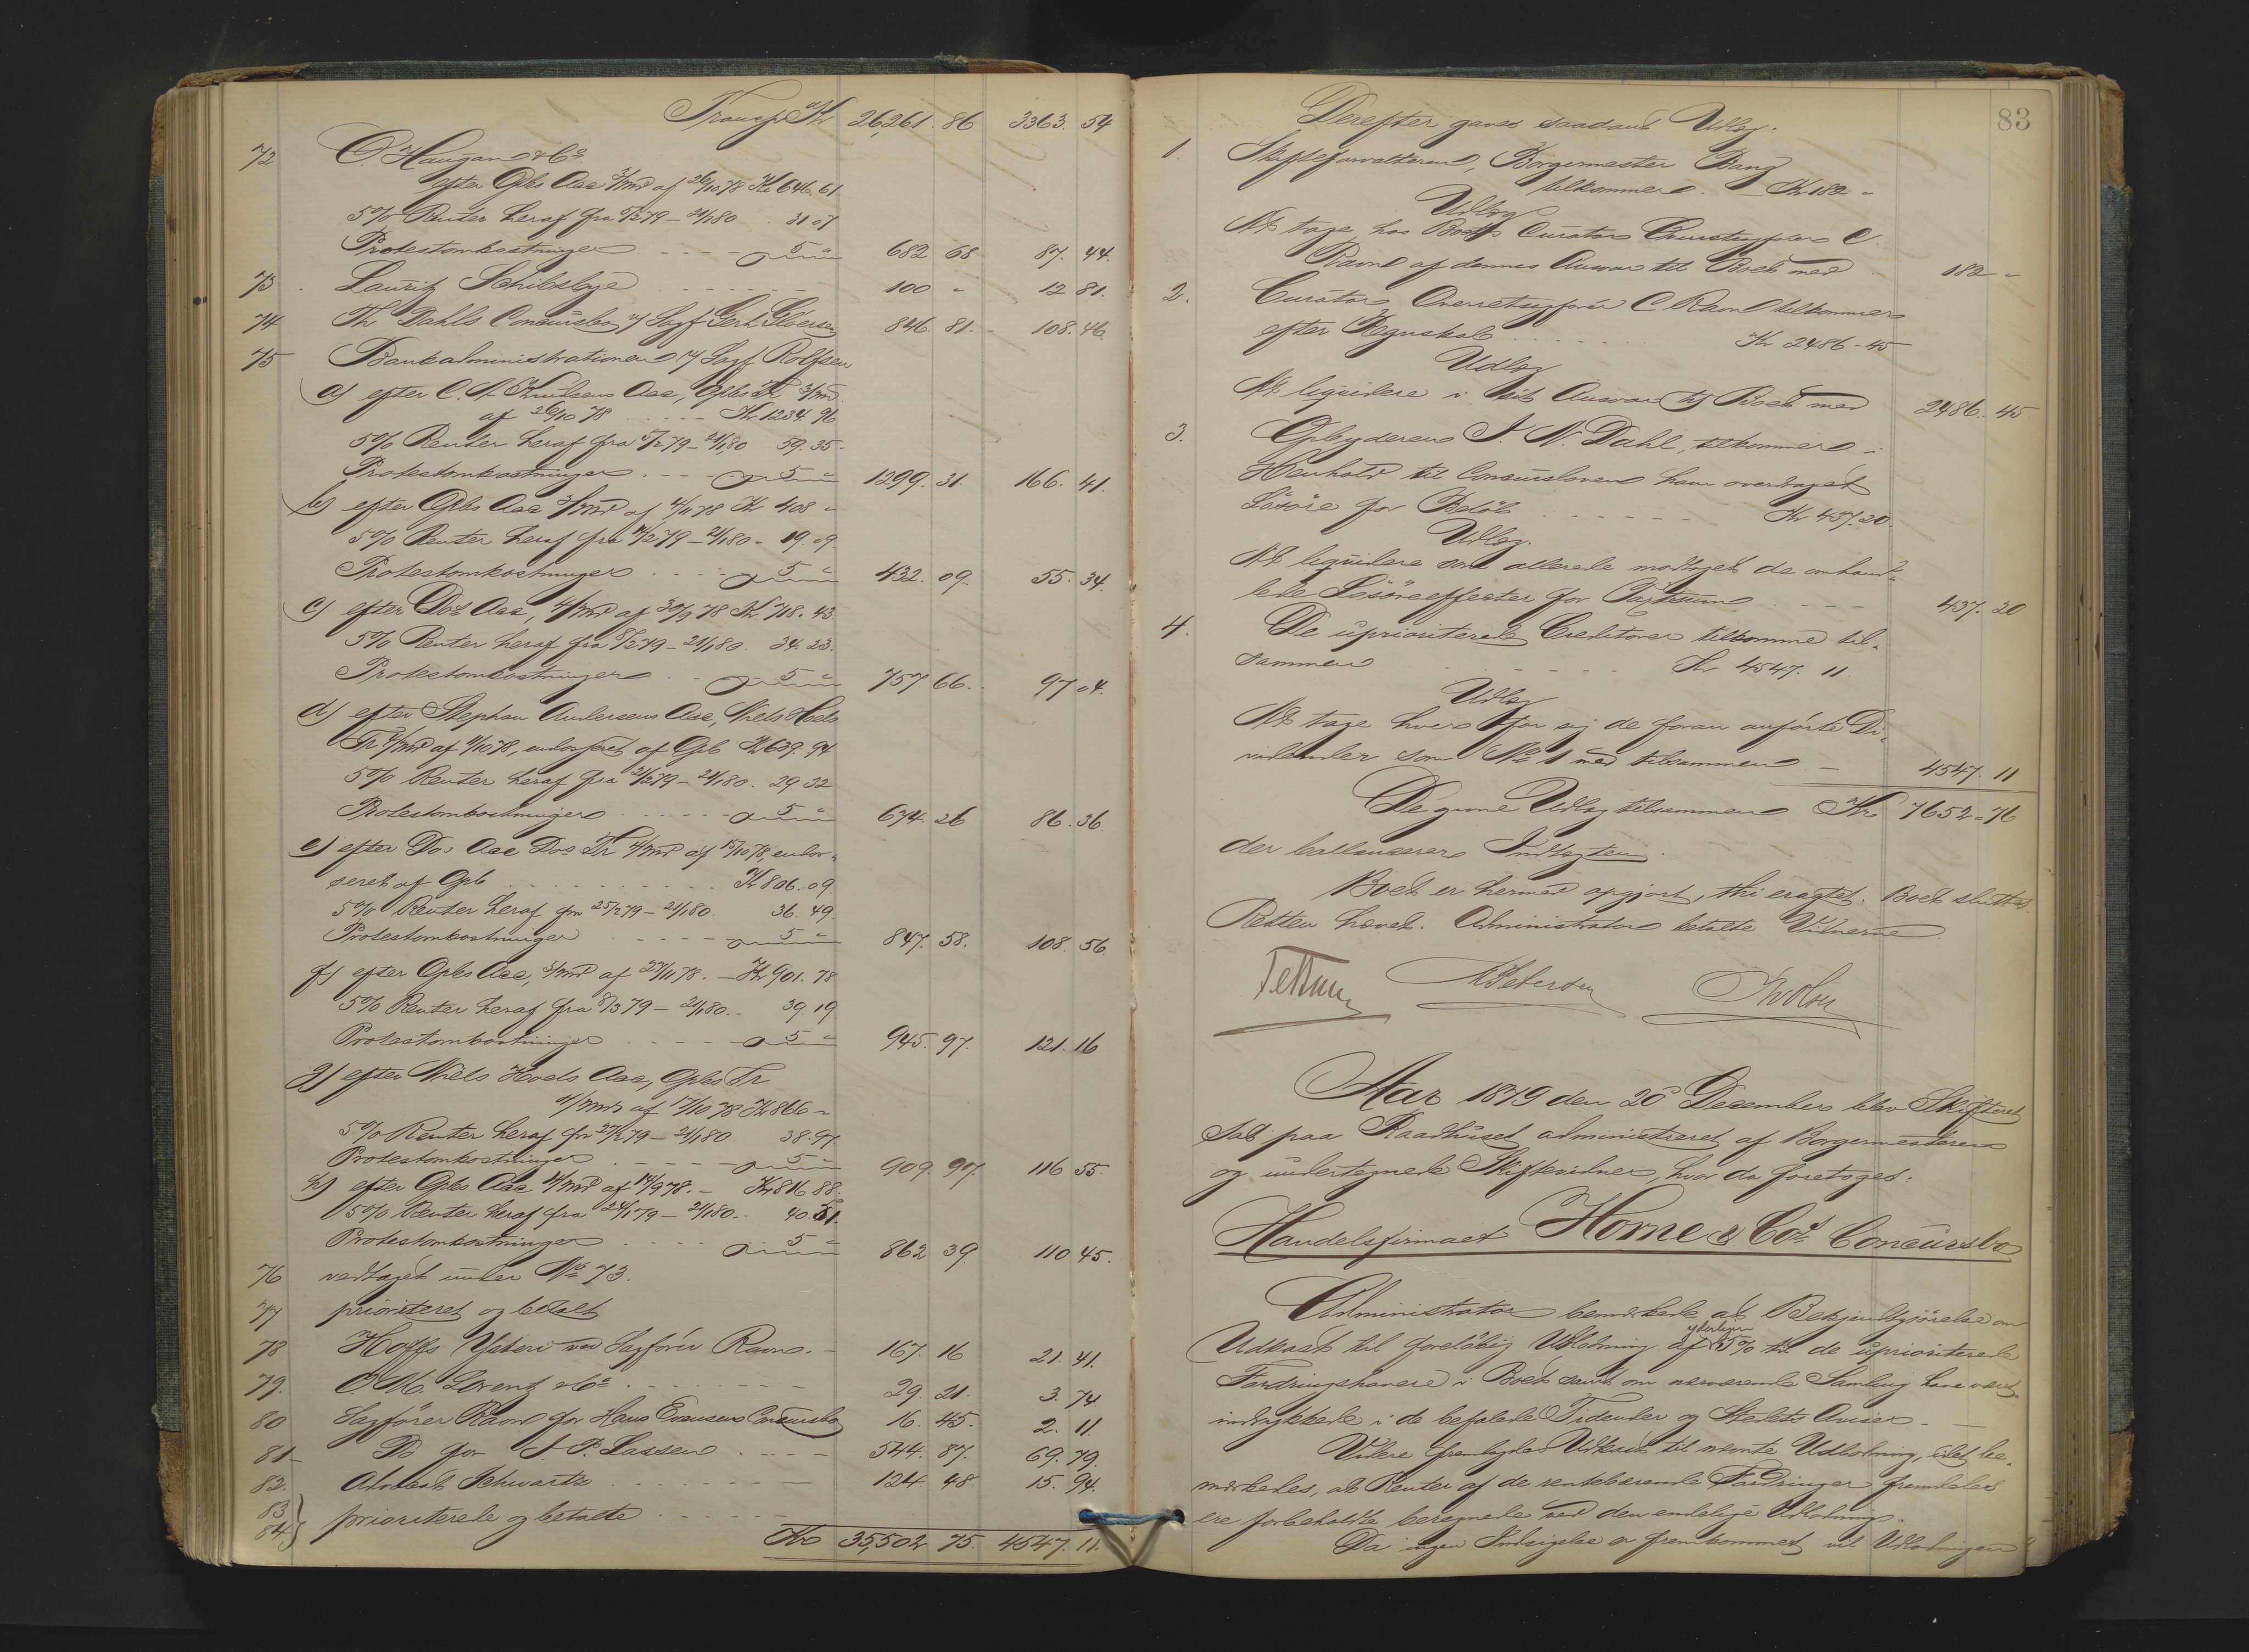 Transp. Kr 26,261. 86 3363. 54
72 O. Haugan & Co
efter Opbs Acc 3/Md af 26/10 78 Kr 646. 61
5% Renter heraf fra 5/2 79 - 21/1 80 31 07
Protestomkostninger 5 " 682 68 87. 44.
73 Lauritz Schibsbye 100 - 12 81.
74 Th Dahls Concursbo v/ Sagf Gerh. Gløersen 846. 81. 108. 46
75 Bankadministrationen v/ Sagf. Rolfsen
a) efter C. A. Knudsens Acc, Opbs Tr 3/Md
af 26/10 78 Kr 1234. 96
5% Renter heraf fra 5/2 79 - 21/1 80 59. 35.
Protestomkostninger 5 " 1299. 31. 166. 41.
b) efter Opbs Acc 3/Md af 4/11 78 Kr 408 "
5% Renter heraf fra 79 - 21/1 80 - 19. 09.
Protestomkostninger 5 " 432. 09. 55. 34.
c) efter Dos Acc, 4/Md af 30/9 78 Kr 718. 43
5% Renter heraf fra 8/2 79 - 21/1 80. 34. 23.
Protestomkostninger 5 " 757. 66. 97 04.
d) efter Stephan Andersens Acc, Niels Hoels
Tr 4/Md af 78, endosseret af Opb Kr 639. 94
5% Renter heraf fra 21/2 79 - 21/1 80. 29 32
Protestomkostninger 5 " 674. 26 86. 36
e) efter Dos Acc Dos Tr 4/Md af 15/10 78, endos-
seret af Opb Kr 806. 09
5% Renter heraf fra 25/2 79 - 21/1 80. 36. 49.
Protestomkostninger 5 " 847. 58. 108. 56
f) efter Opbs Acc, 3/Md af 27/11 78. - Kr 901. 78
5% Renter heraf fra 8/3 79 - 21/1 80. - 39 19
Protestomkostninger 5 " 945. 97. 121. 16
g) efter Niels Hoels Acc, Opbs Tr
4/Md af 17/10 78 Kr 866 "
5% Renter heraf fra 27/2 79 - 21/1 80. 38. 97.
Protestomkostninger 5 " 909. 97. 116 55.
h) efter Opbs Acc 4/Md af 14/9 78. - Kr 816 88.
5% Renter heraf fra 24/1 79 - 21/1 80. - 40.
Protestomkostninger 5 " 862 39. 110 45.
76 vedtaget under No 73.
77 prioriteret og betalt
78 Hoffs Ysteri ved Sagfører Ravn. - 167. 16 21. 41.
79. O. M. Lorentz & Co 29. 21. 3. 74
80 Sagfører Ravn for Hans Evensens Concursbo 16. 45. 2. 11.
81 Do for J. P. Lassen 544. 87. 69. 79.
82. Advocat Schwartz 124. 48 15. 94.
83
84 } prioriterede og betalte
Kr 35,502 75. 4547. 11.
83
Derefter gaves saadant Udlæg.
1. Skifteforvalteren, Borgermester Bang
tilkommer Kr 182 -
Udlæg
At tage hos Boets Curator Overretssagfører C.
Ravn af dennes Ansvar til Boet med 182 -
2. Curator, Overretssagfører C Ravn tilkommer
efter Regnskab Kr 2486 - 45
Udlæg
At liquidere i sit Ansvar til Boet med 2486. 45
3. Opbyderen J. N. Dahl, tilkommer i
Henhold til Concursloven ham overdraget
Løsøre for Beløb Kr 437. 20
Udlæg.
At liquidere som allerede modtaget de omhand-
lede Løsøreeffecter for Taxtsum 437. 20
4. De uprioriterede Creditorer tilkomme til-
sammen Kr 4547. 11.
Udlæg
At tage hver for sig de foran anførte Di-
vidender som No 1 med tilsammen - 4547. 11
Degivne Udlæg tilsammen Kr 7652 = 76
der ballancerer Indtægten.
Boet er hermed opgjort, thi eragtet. Boet sluttes
Retten hævet. Administrator betalte Vidnerne
Petersen
Aar 1879 den 20de December blev Skifteret
sat paa Raadhuset administreret af Borgermesteren
og undertegnede Skiftevidner, hvor da foretoges.
Handelsfirmaet Horne & Cos Concursbo
Administrator bemærkede at Bekjendtgjørelse om
yderligere
Udkast til foreløbig Udlodning af 5% til de uprioriterede
Fordringshavere i Boet samt om nærværende Samling have været
indrykkede i de befalede Tidender og Stedets Aviser. -
Videre fremlagdes Udkast til nævnte Udlodning, idet be-
mærkedes, at Renter af de rentebærende Fordringer fremdeles
ere forbeholdte beregnede ved den endelige Udlodning.
Da ingen Indsigelse er fremkommet vil Udlodningen